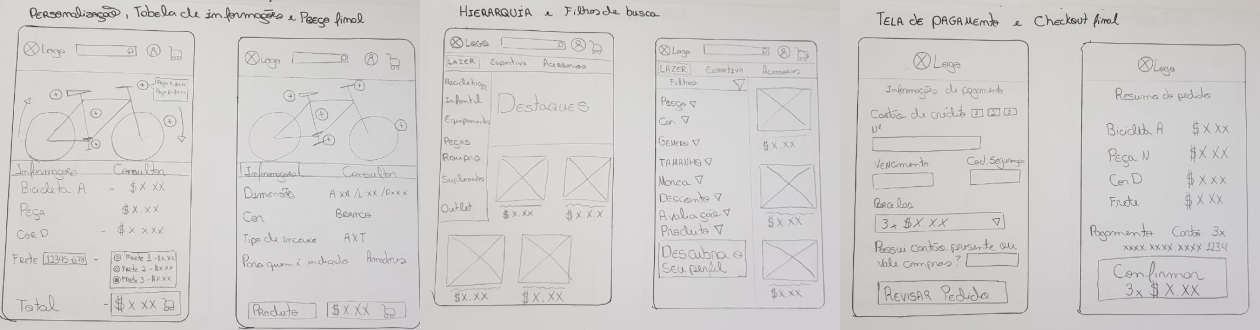 Personalização, Tabela de informações e Preço final
Logo
Peça 1 - $x.xx
Peça 2 - $x.xx
Informações Consultar
Bicicleta A - $x.xx
Peça $x.xx
Cor D - $x.xxx
Frete 12345678 -
Frete 1 - $x.xx
Frete 2 - $x.xx
Frete 3 - $x.xx
Total - $x xx
Logo
Informações Consultar
Dimensões A xx /L xx /D xxx
Cor Branca
Tipo de encaixe AXT
Para quem é indicado Amadores
Produto $x.xx
HIERARQUIA e Filtros de busca
Logo
LAZER Esportiva Acessórios
Bicicletas
Infantil
Equipamentos
Peças
Roupas
Suplementos
Outlet
Destaques
$x.xx $x.x.x
$x.xx $x.xx
Logo
LAZER Esportiva Acessórios
Filtros
Preço
Cor
Genero
TAMANHO
Marca
Desconto
Avaliação
Produto
Descubra o
seu perfil
$x.xx
$x.xx
$x.xx
TELA DE PAGAMENTO e Checkout final
Logo
Informações de pagamento
Cartão de crédito 1 2 3
Nº
Vencimento Cod. Segurança
Parcelas
3x $x xx
Possui cartão presente ou
Vale compras?
REVISAR Pedido
Logo
Resumo do pedido
Bicicleta A $x xx
Peça N $x xx
Cor D $x xx
Frete $x xx
Pagamento Cartão 3x
xxxx xxxx xxxx 1234
Confirmar
3x $x.xx